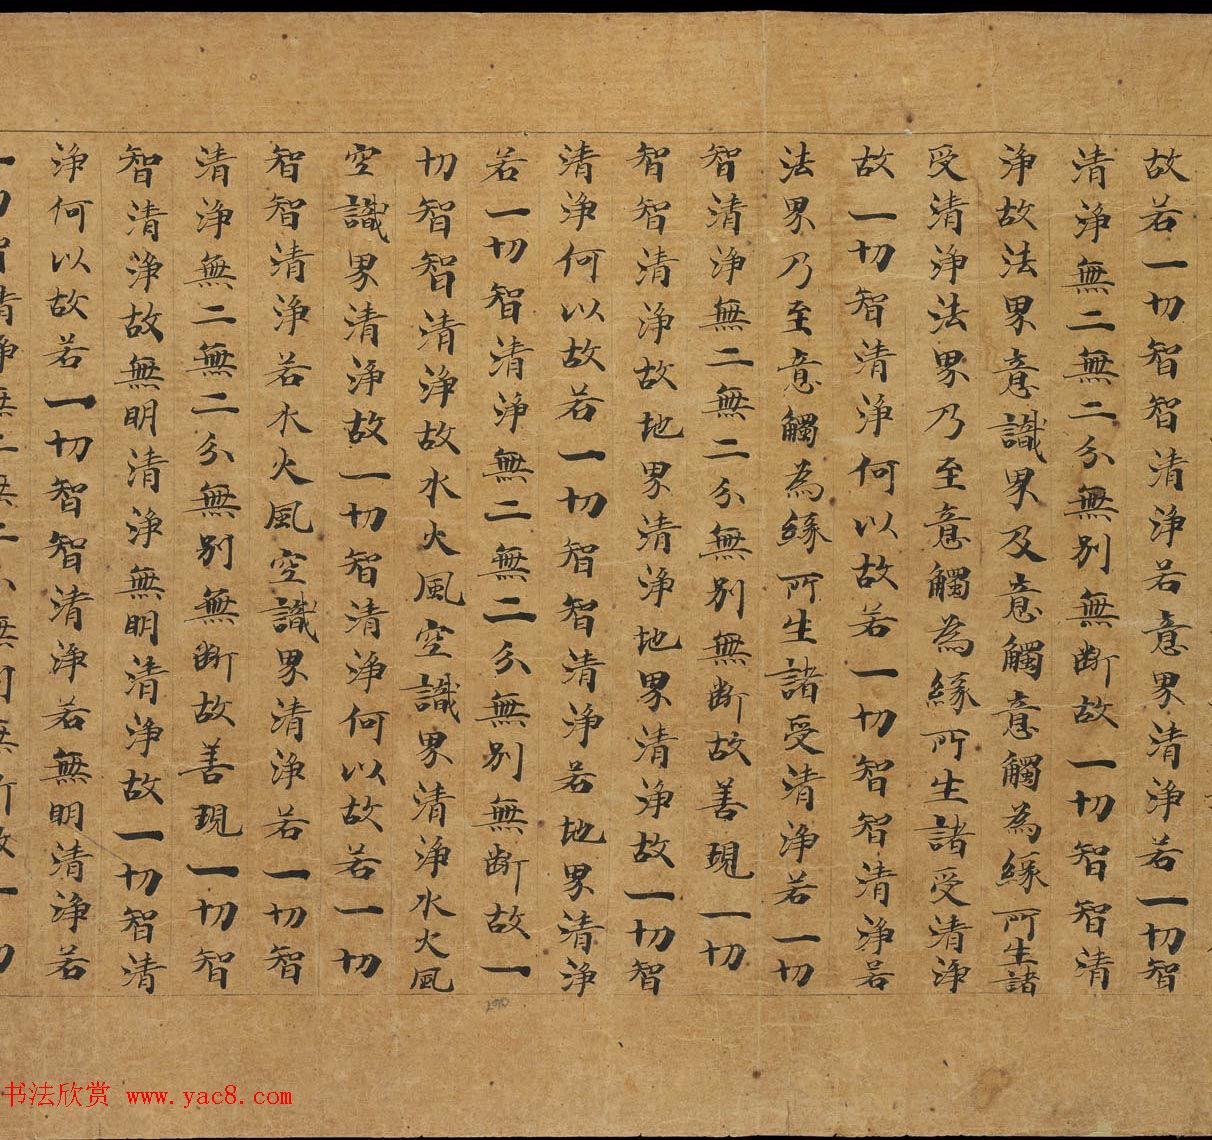 故若一切智智清浄若意界清浄若一切智
清浄無二無二分無別無断故一切智智清
浄故法界意識界及意觸意觸為緣所生諸
受清浄法界乃至意觸為緣所生諸受清浄
故一切智清浄何以故若一切智智清浄若
法界乃至意觸為緣所生諸受清浄若一切
智清浄無二無二分無別無断故善現一切
智智清浄故地界清浄地界清浄故一切智
清浄何以故若一切智智清浄若地界清浄
若一切智清浄無二無二分無別無断故一
切智智清浄故水火風空識界清浄水火風
空識界清浄故一切智清浄何以故若一切
智智清浄若水火風空識界清浄若一切智
清浄無二無二分無別無断故善現一切智
智清浄故無明清浄無明清浄故一切智清
浄何以故若一切智智清浄若無明清浄若
一切智清浄無二無二分無別無断故一切
书法欣赏 www.yac8.com